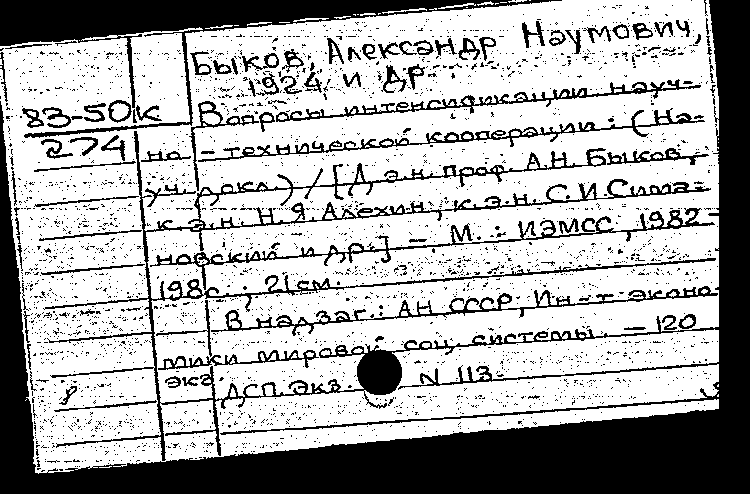 Быков, Александр Наумович,
1924 и др.
83-50к
274
Вопросы интенсификации науч-
но-технической кооперации: (На-
уч. докл.) / [Д.э.н. проф. А.Н. Быков,
к.э.н. Н.Я. Алехин, к.э.н. С.И. Сима-
новский и др.] – М.: ИЭМСС, 1982 –
198с.; 21см.
В надзаг.: АН СССР, Ин-т эконо-
мики мировой соц. системы. – 120
экз.
ДСП. Экз. N 113.
8